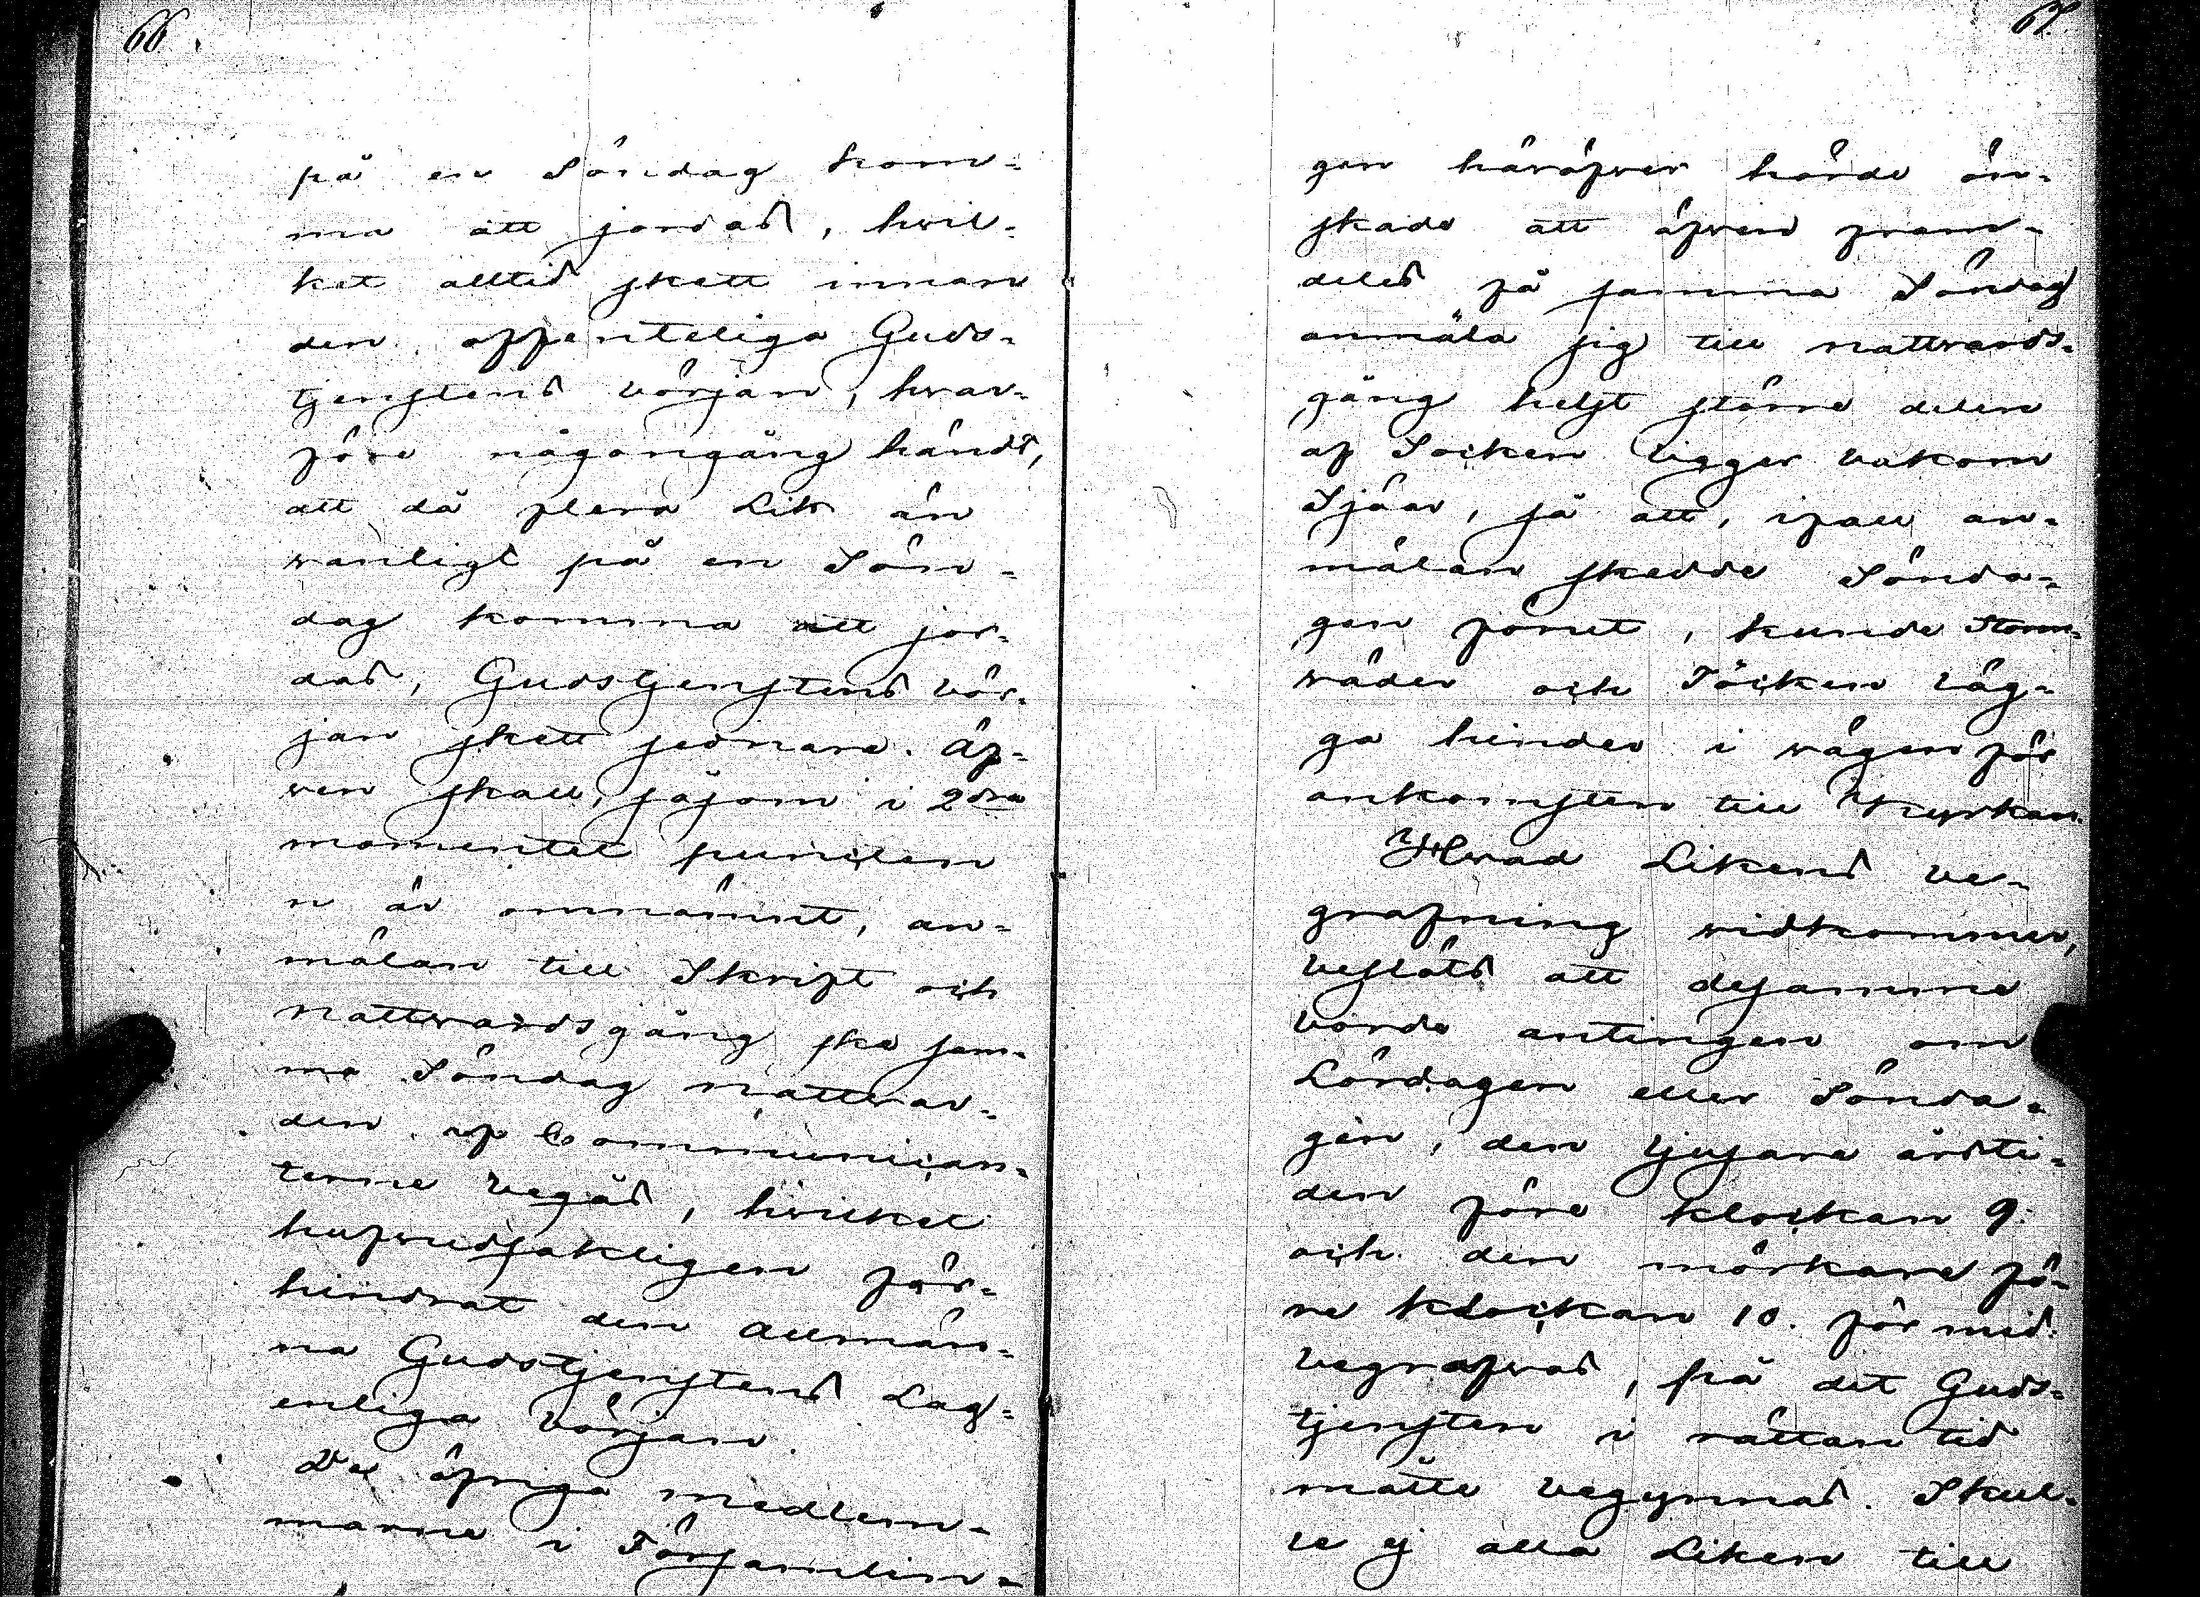 66.
på en Söndag kom-
ma att jordas, hwil-
ket alltid skett innan
den offenteliga Guds-
tjenstens början, hwar-
före någongång händt,
att då flera Lik än
wanligt på en Sön-
dag komma att jor-
das, Gudstjenstens bör-
jan skett sednare. Äf-
ven skall, såsom i 2dra
momentet puncten
n är omnämnt, an-
mälan till Skrift och
nattwardsgång ske sam-
ma Söndag nattwar-
den af Communican-
terne begås, hwilket
hufwudsakligen för-
hindrat den allmän-
na Gudstjenstens Lag-
enliga början.
De öfriga medlem-
marne i Församlin-
67.
gen häröfwer hörde ön-
skade att äfwen fram-
deles få samma Söndag
anmäla sig till nattwards-
gång helst större delen
af Socken ligger bakom
Sjöar, så att, ifall an-
mälan skedde Sönda-
gen förut, kunde Storm-
wäder och Töcken läg-
ga hinder i wägen för
ankomsten till Kyrkan.
Hwad Likens be-
grafning widkommer,
beslöts att desamme
borde antingen om
Lördagen eller Sönda-
gen, den ljusare årsti-
den före klockan 9.
och den mörkare fö-
re klockan 10. förmid.
begrafwas, på det Guds-
tjensten i rättan tid
måtte begynnas. Skul-
le ej alla Liken till